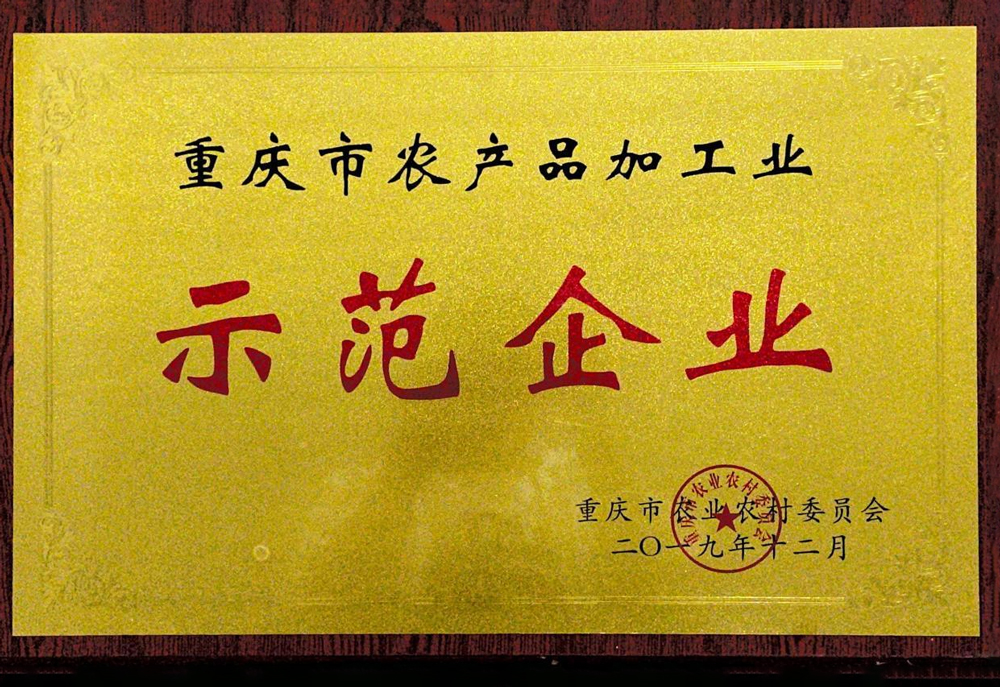 重庆市农产品加工业
示范企业
重庆市农业农村委员会
二〇一九年十二月
重庆市农业农村委员会